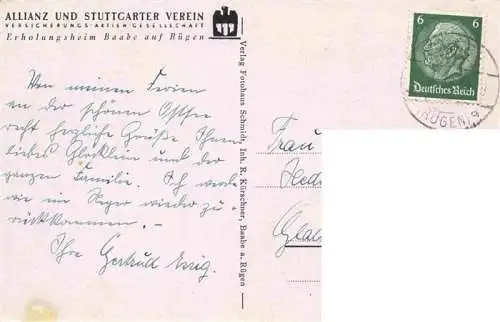 ALLIANZ UND STUTTGARTER VEREIN
VERSICHERUNGS-AKTIEN-GESELLSCHAFT
Erholungsheim Baabe auf Rügen
Von meinen Ferien
an der schönen Ostsee
recht herzliche Grüße Ihnen
liebes Glöcklein und der
ganzen Familie. Ich werde
wie ein Neger wieder zu-
rückkommen. –
Ihre Gertrud
Verlag Fotohaus Schmidt, Inh. R. Kürschner, Baabe a. Rügen
6 6
Deutsches Reich
(RÜGEN)
Frau